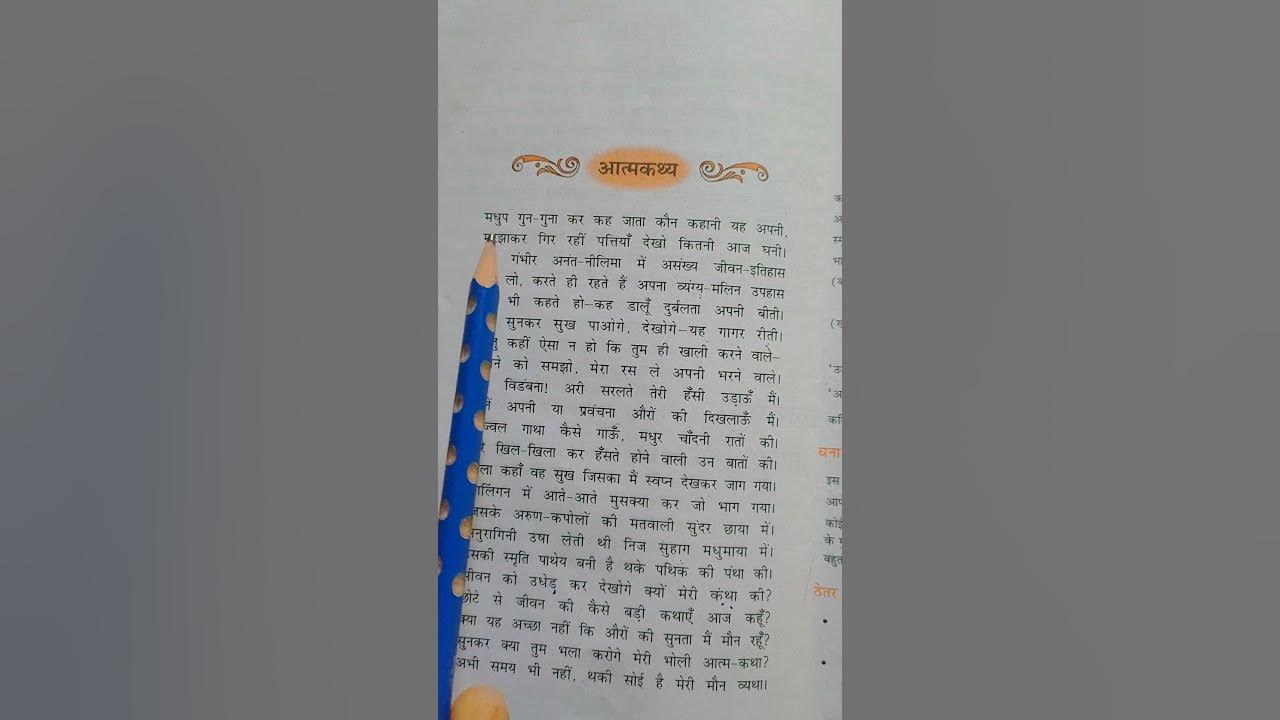 आत्मकथ्य
मधुप गुन-गुना कर कह जाता कौन कहानी यह अपनी,
गिर रहीं पत्तियाँ देखो कितनी आज घनी।
गंभीर अनंत-नीलिमा में असंख्य जीवन-इतिहास
लो, करते ही रहते हैं अपना व्यंग्य-मलिन उपहास
भी कहते हो-कह डालूँ दुर्बलता अपनी बीती।
सुनकर सुख पाओगे, देखोगे-यह गागर रीती।
कहीं ऐसा न हो कि तुम ही खाली करने वाले-
को समझो, मेरा रस ले अपनी भरने वाले।
विडंबना! अरी सरलते तेरी हँसी उड़ाऊँ मैं।
अपनी या प्रवंचना औरों की दिखलाऊँ मैं।
गाथा कैसे गाऊँ, मधुर चाँदनी रातों की।
खिल-खिला कर हँसते होने वाली उन बातों की।
कहाँ वह सुख जिसका मैं स्वप्न देखकर जाग गया।
में आते-आते मुसक्या कर जो भाग गया।
अरुण-कपोलों की मतवाली सुंदर छाया में।
उषा लेती थी निज सुहाग मधुमाया में।
स्मृति पाथेय बनी है थके पथिक की पंथा की।
जीवन को उधेड़ कर देखोगे क्यों मेरी कंथा की?
छोटे से जीवन की कैसे बड़ी कथाएँ आज कहूँ?
क्या यह अच्छा नहीं कि औरों की सुनता मैं मौन रहूँ?
सुनकर क्या तुम भला करोगे मेरी भोली आत्म-कथा?
अभी समय भी नहीं, थकी सोई है मेरी मौन व्यथा।
चना
इस
आप
कोई
के
बहुत
ठेतर